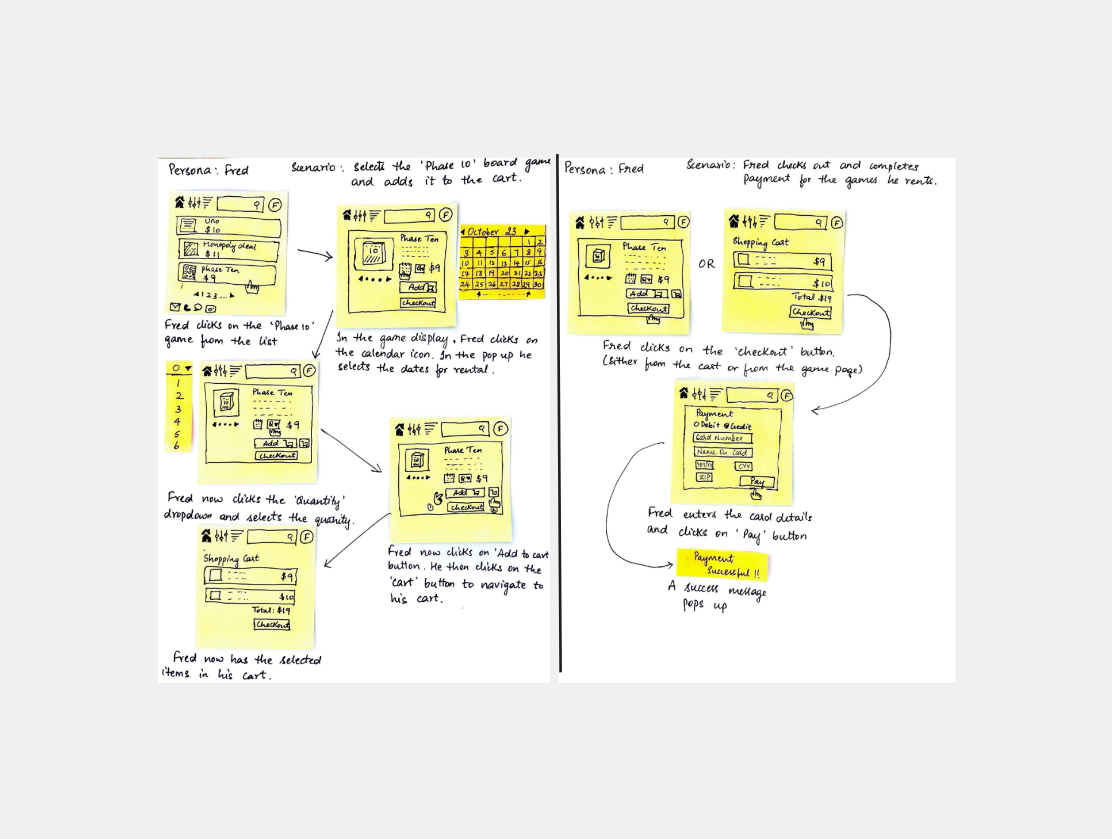 Persona: Fred
Scenario: Selects the 'Phase 10' board game
and adds it to the cart.
F
Uno
$10
Monopoly deal
$11
Phase Ten
$9
1 2 3 ...
Fred clicks on the 'Phase 10'
game from the list
F
Phase Ten
10
$9
Add
Checkout
October 23
1 2
3 4 5 6 7 8 9
10 11 12 13 14 15 16
17 18 19 20 21 22 23
24 25 26 27 28 29 30
In the game display, Fred clicks on
the calendar icon. In the pop up he
selects the dates for rental.
0
1
2
3
4
5
6
F
Phase Ten
10
$9
Add
Checkout
Fred now clicks the 'Quantity'
dropdown and selects the quality.
F
Phase Ten
10
$9
Add
Checkout
Fred now clicks on 'Add to cart
button. He then clicks on the
'cart' button to navigate to
his cart.
F
Shopping Cart
$9
$10
Total: $19
Checkout
Fred now has the selected
items in his cart.
Persona: Fred
Scenario: Fred checks out and completes
payment for the games he rents.
F
Phase Ten
$9
Add
Checkout
OR
F
Shopping Cart
$9
$10
Total $19
Checkout
Fred clicks on the 'checkout' button.
(Either from the cart or from the game page)
F
Payment
Debit Credit
Card Number
Name On Card
CVV
ZIP
Pay
Fred enters the card details
and clicks on 'Pay' button
Payment
Successful !!
A success message
pops up